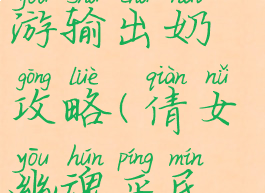 游输出奶
gōng lüè qiàn nǚ
攻略(倩女
yōu hún píng mín
幽魂平民